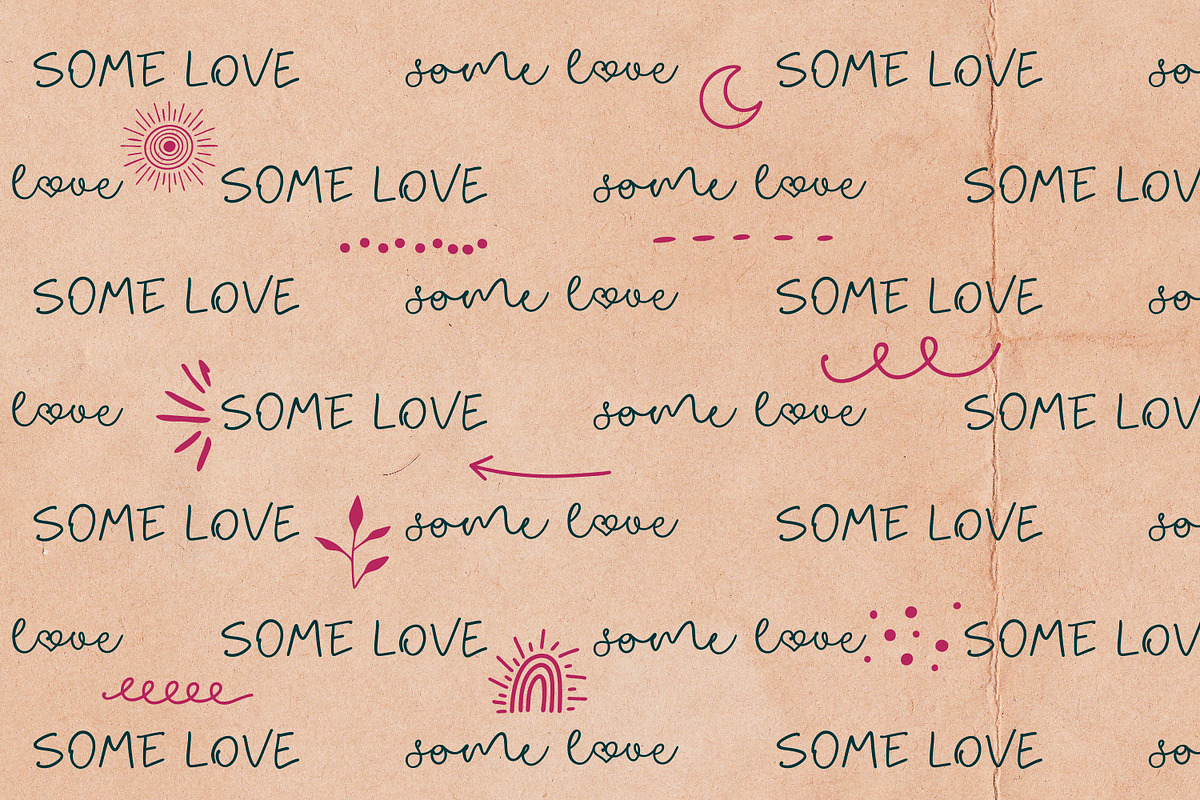 SOME LOVE some love SOME LOVE so
love SOME LOVE some love SOME LOV
SOME LOVE some love SOME LOVE so
love SOME LOVE some love SOME LOV
SOME LOVE some love SOME LOVE so
love SOME LOVE some love SOME LOV
SOME LOVE some love SOME LOVE so